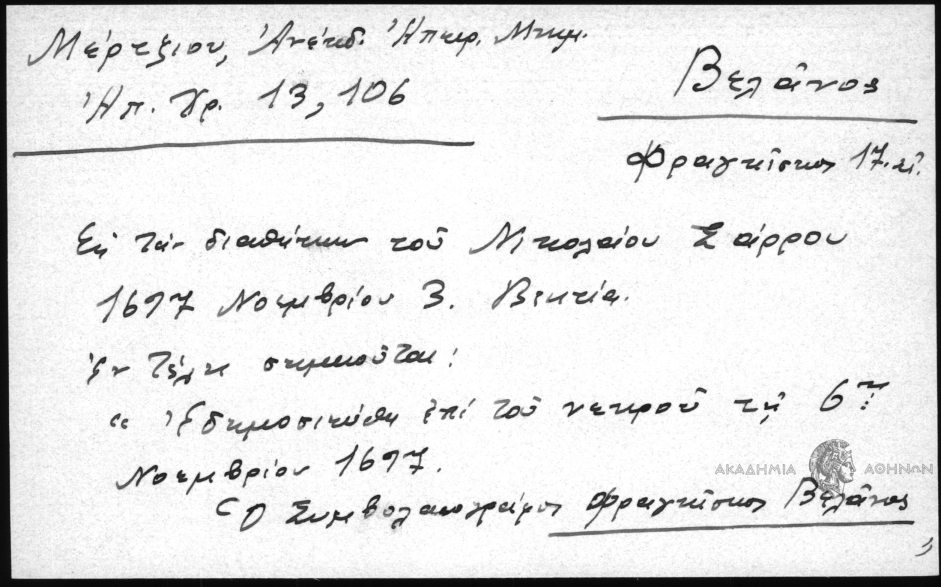 Μέρτζιου, Ἀνέκδ. Ἠπειρ. Μνημ.
Ἠπ. Χρ. 13, 106
Βελᾶνος
Φραγκῖσκος 17. αἰ.
Εἰς τὴν διαθήκην τοῦ Νικολαίου Σάρρου
1697 Νοεμβρίου 3. Βενετία.
ἐν τέλει σημειοῦται:
"Ἐδημοσιεύθη ἐπὶ τοῦ νεκροῦ τῇ 6ῃ
Νοεμβρίου 1697.
Ὁ Συμβολαιογράφος Φραγκῖσκος Βελᾶνος
ΑΚΑΔΗΜΙΑ ΑΘΗΝΩΝ